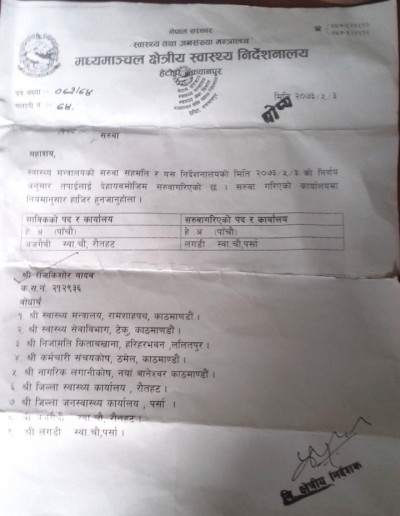 नेपाल सरकार
स्वास्थ्य तथा जनसंख्या मन्त्रालय
मध्यमाञ्चल क्षेत्रीय स्वास्थ्य निर्देशनालय
पत्र संख्या :- ०७३/७४
चलानी नं :- ६८.
मिति २०७३/५/३
सरुवा
महाशय,
स्वास्थ्य मन्त्रालयको सरुवा सहमति र यस निर्देशनालयको मिति २०७३/५/३ को निर्णय
अनुसार तपाईलाई देहायबमोजिम सरुवागरिएको छ । सरुवा गरिएको कार्यालयमा
नियमानुसार हाजिर हुनजानुहोला ।
साविकको पद र कार्यालय सरुवागरिएको पद र कार्यालय
हे अ (पांचौ) हे अ (पांचौ)
स्वा.चौ, रौतहट लगडी स्वा.चौ,पर्सा
श्री राजकिशोर यादव
क.स.नं. २१२९३६
बोधार्थ
१ श्री स्वास्थ्य मन्त्रालय, रामशाहपथ, काठमाण्डौ ।
२ श्री स्वास्थ्य सेवाविभाग, टेकु, काठमाण्डौ ।
३ श्री निजामति किताबखाना, हरिहरभवन ,ललितपुर ।
४ श्री कर्मचारी संचयकोष, ठमेल, काठमाण्डौ ।
५ श्री नागरिक लगानीकोष, नयां बानेश्वर काठमाण्डौ
६ श्री जिल्ला स्वास्थ्य कार्यालय , रौतहट ।
७ श्री जिल्ला जनस्वास्थ्य कार्यालय , पर्सा ।
श्री स्वा.चौ,रौतहट ।
९ श्री लगडी स्वा.चौ,पर्सा ।
नि क्षेत्रीय निर्देशक